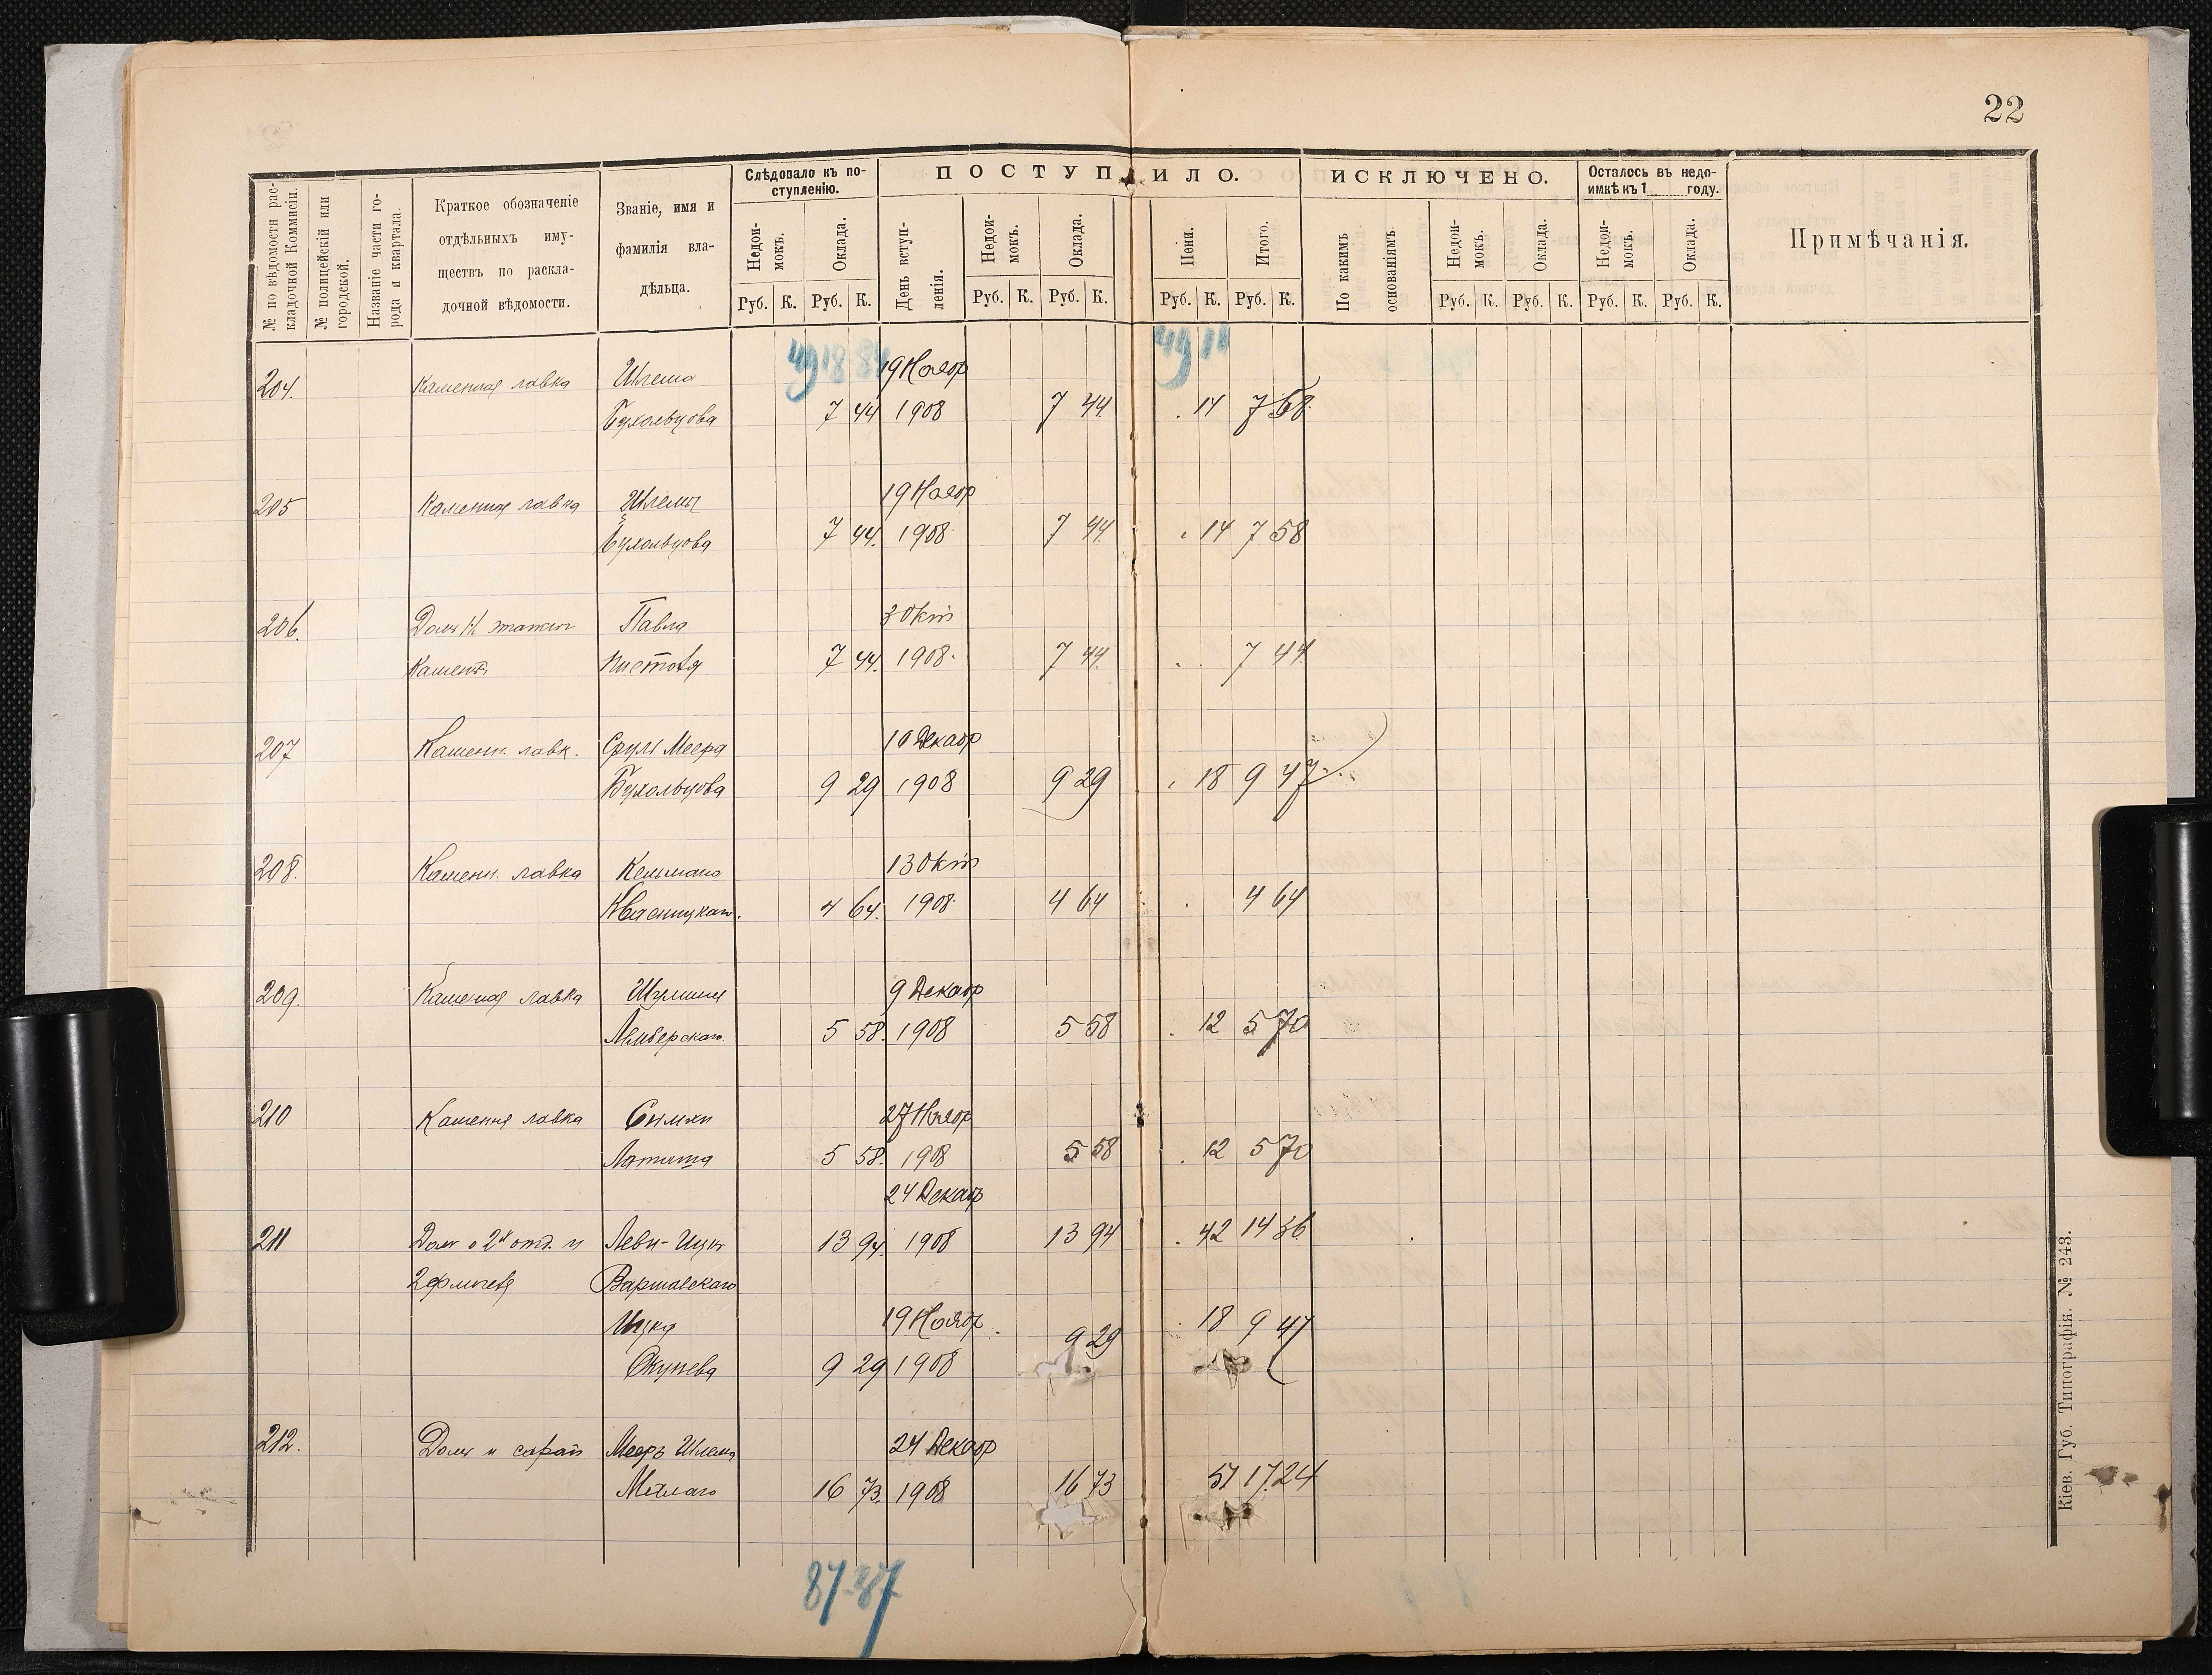 22
№ по вѣдомости рас-
кладочной Комисіи.
№ полицейскій или
городской.
Названіе части го-
рода и квартала.
Краткое обозначеніе
отдѣльныхъ иму-
ществъ по раскла-
дочной вѣдомости.
Званіе, имя и
фамилія вла-
дѣльца.
Слѣдовало къ по-
ступленію.
Недои-
мокъ.
Оклада.
Руб. К. Руб. К.
ПОСТУПИЛО.
День вступ-
ленія.
Недои-
мокъ.
Оклада.
Пени.
Итого.
Руб. К. Руб. К. Руб. К. Руб. К.
ИСКЛЮЧЕНО.
По какимъ
основаніямъ.
Недои-
мокъ.
Оклада.
Руб. К. Руб. К.
Осталось въ недо-
имкѣ къ 1 году.
Недои-
мокъ.
Оклада.
Руб. К. Руб. К.
Примѣчанія.
204. Каменная лавка Шлема 19 Ноябр
Бухольцова 7 44 1908 7 44 . 14 7 58
205 Каменная лавка Шлемы 19 Ноябр
Бухольцова 7 44. 1908 7 44 . 14 7 58
206. Павла 3 Окт
7 44. 1908. 7 44 . 7 44
207 Каменн. лавк. Сруль Меера 10 Декабр
Бухольцова 9 29 1908 9 29 . 18 9 47
208. Каменн. лавка 13 Окт
Квасницкаго. 4 64. 1908 4 64 . 4 64
209. Каменая лавка 9 Декабр
5 58. 1908 5 58 . 12 5 70
210 Камення лавка Симхи 27 Ноябр
5 58. 1908 5 58 . 12 5 70
24 Декабр
211 Леви-Ицки 13 94. 1908 13 94 . 42 14 36
Варшавскаго
Ицка 19 Ноябр. 9 29 . 18 9 47
Окунева 9 29 1908
212. Домъ и сарай Мееръ Шлема 24 Декабр
16 73. 1908 16 73 51 17.24
87-87
Кіев. Губ. Типографія. № 243.